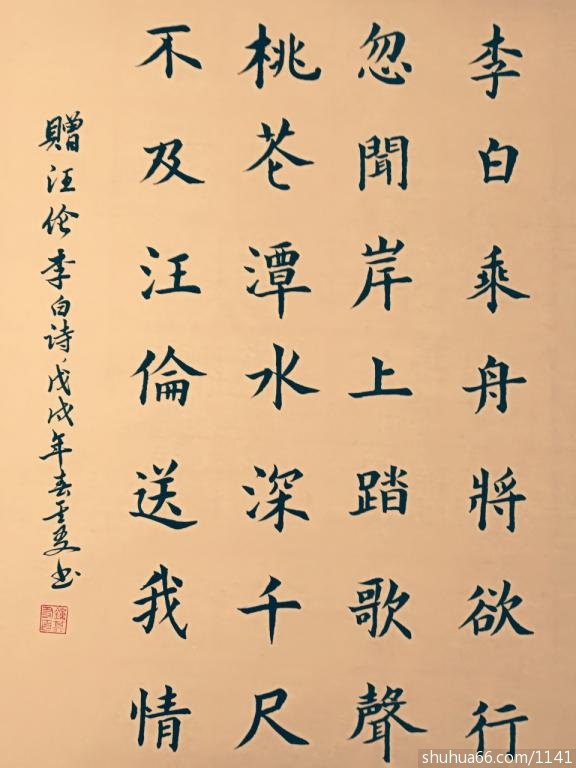 李白乘舟將欲行
忽聞岸上踏歌聲
桃花潭水深千尺
不及汪倫送我情
贈汪倫李白诗戊戌年春
书
shuhua66.com/1141